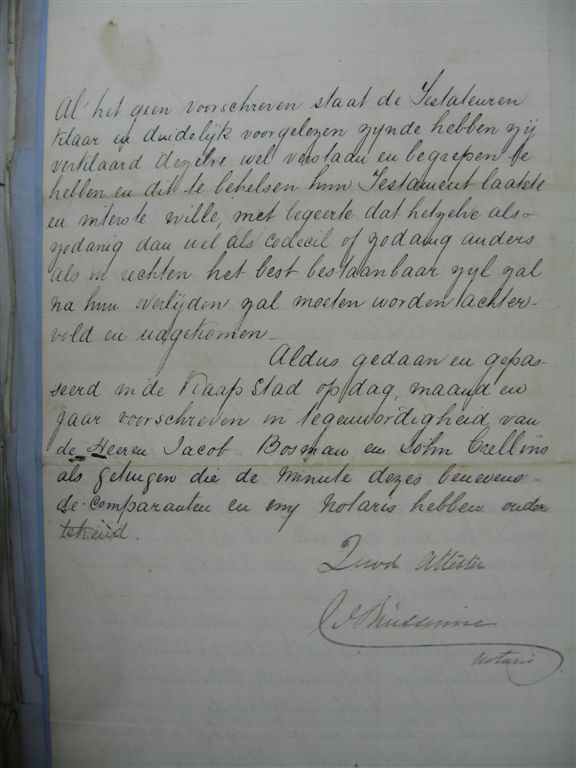 Al' het geen voorschreven staat de Testateuren
klaar en duidelijk voorgelezen zynde hebben zij
verklaard dezelve wel verstaan en begrepen te
hebben en dit te behelsen hun Testament laatste
en uiterste wille, met begeerte dat hetzelve als-
zodanig dan wel als codecil of zodanig anders
als in rechten het best bestaanbaar zyl zal
na hun overlijden zal moeten worden achter-
vold en nagekomen_
Aldus gedaan en gepas-
seerd in de Kaap Stad op dag, maand en
jaar voorschreven in tegenwordigheid van
de Heeren Jacob Bosman en John Crellins
als getuigen die de Minute dezes benevens
de comparanten en my Notaris hebben onder
tekend.
Quod Attestor
Notaris